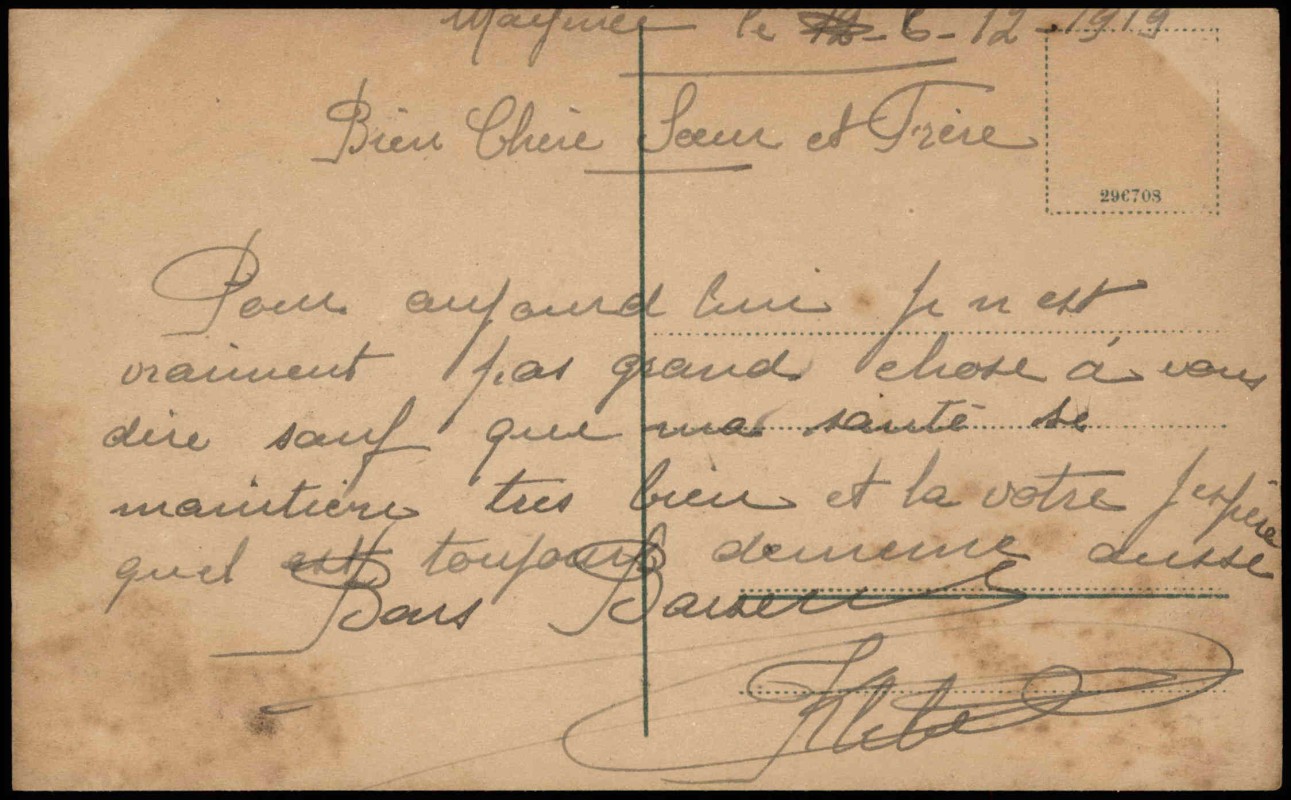 Mayence le 6-12-1919
Bien Chère Sœur et Frère
296708
Pour aujourd hui je n est
vraiment pas grand chose à vous
dire sauf que ma santé se
maintiens tres bien et la votre j espère
quel est toujours dememe aussi
Bons Baisers